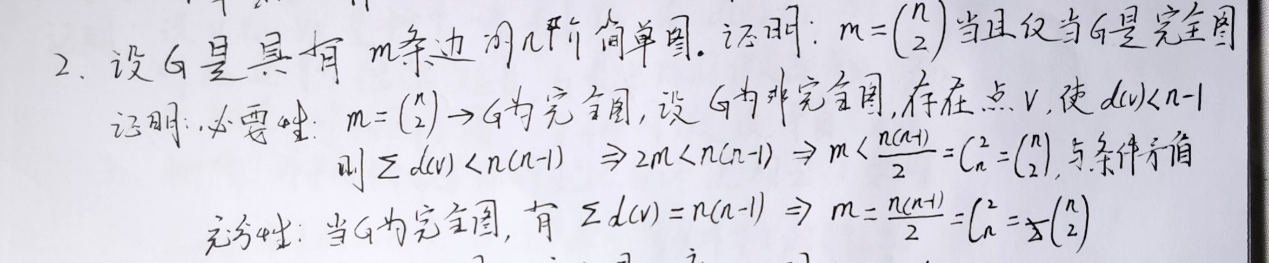 2. 设G是具有m条边的n阶简单图. 证明: m=(n 2)当且仅当G是完全图
证明: 必要性: m=(n 2)→G为完全图, 设G为非完全图, 存在点v, 使d(v)<n-1
则∑d(v)<n(n-1) ⇒2m<n(n-1) ⇒m<n(n-1)/2=C²ₙ=(n 2), 与条件矛盾
充分性: 当G为完全图, 有∑d(v)=n(n-1) ⇒ m=n(n-1)/2=C²ₙ=(n 2)